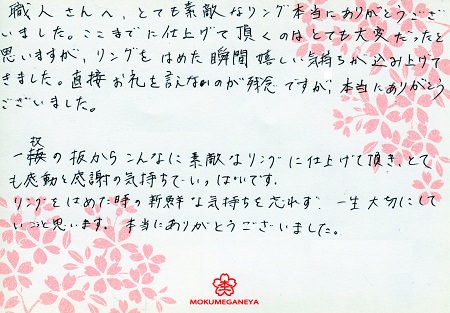 職人さんへ、とても素敵なリング本当にありがとうござ
いました。ここまでに仕上げて頂くのはとても大変だったと
思いますが、リングをはめた瞬間嬉しい気持ちが込み上げて
きました。直接お礼を言えないのが残念ですが、本当にありがとう
ございました。
枚
一の板からこんなに素敵なリングに仕上げて頂き、とて
も感動と感謝の気持ちでいっぱいです。
リングをはめた時の新鮮な気持ちを忘れず、一生大切にして
いこうと思います。本当にありがとうございました。
MOKUMEGANEYA